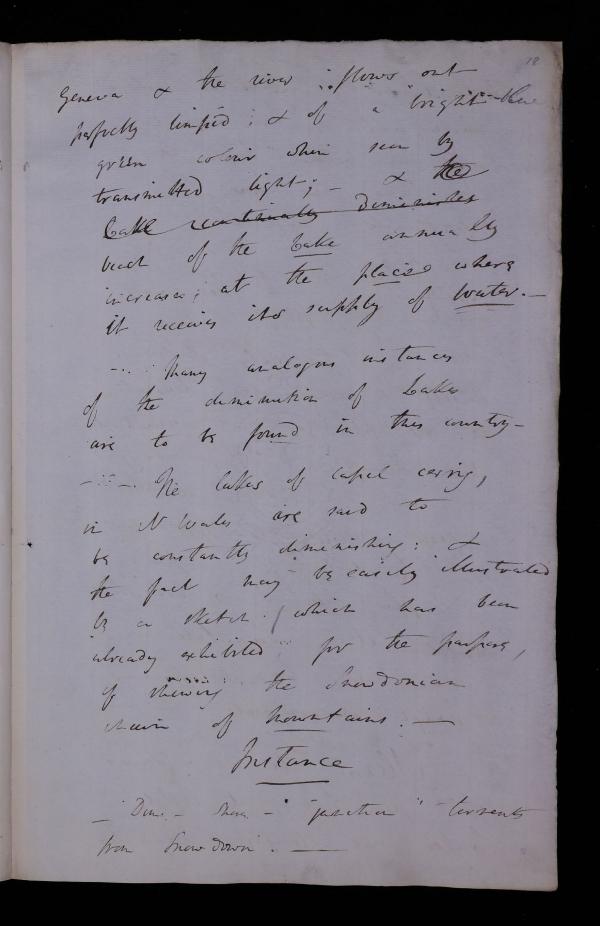 18
Geneva & the river flows out
perfectly limpid; & of a bright blue
green colour when seen by
transmitted light; - & the
Lake continually diminishes
bed of the Lake annually
increases; at the places where
it receives its supply of water. -
-... Many analogous instances
of the diminution of Lakes
are to be found in this country -
- .. - The lakes of capel cerrig,
in N Wales are said to
be constantly diminishing: &
the fact may be easily illustrated
by a sketch / which has been
already exhibited for the purpose,
of shewing the Snowdonian
chain of mountains. -
Instance
- Dim. - Snow - "junction" torrents
from Snowdown. -